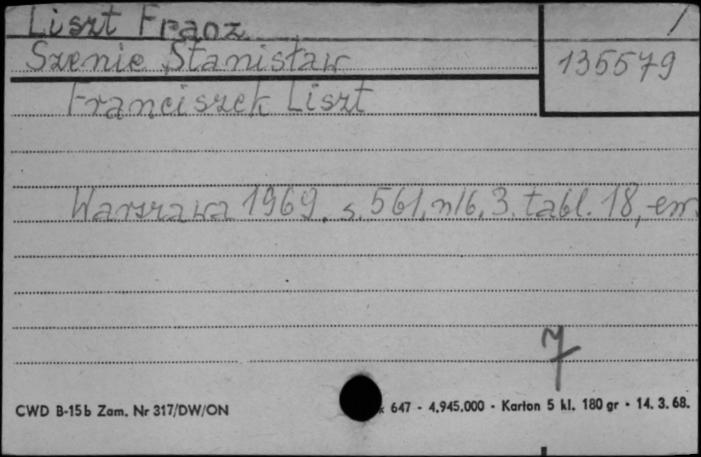 Liszt Franz /
Szenic Stanisław 135579
Franciszek Liszt
Warszawa 1969. s. 561, nlb, 3. tabl. 18, em
7
CWD B-15b Zam. Nr 317/DW/ON 647 - 4.945.000 - Karton 5 kl. 180 gr - 14. 3. 68.